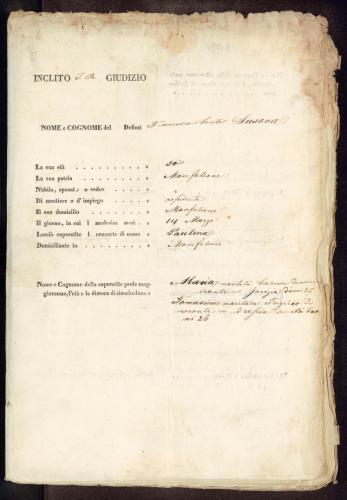 INCLITO I. R. GIUDIZIO
NOME e COGNOME del Defont Francesco Conte Susana
La sua età . . . . . . . . . . »
La sua patria . . . . . . . . . » Monfalcone
Nubilo, sposat. o vedov . . . . . »
Di mestiere o d'impiego . . . . . » possidente
Il suo domicilio . . . . . . . . » Monfalcone
Il giorno, in cui l medesim morì . . » 14 Marzo
Lasciò superstite l consorte di nome » Paulina
Domiciliante in . . . . . . . . » Monfalcone
Nome e Cognome della superstite prole mag- Maria maritata
giorenne, l'età e la dimora di ciascheduno » Gorizia d'anni 27
Tommasina maritata
morante in
ni 26